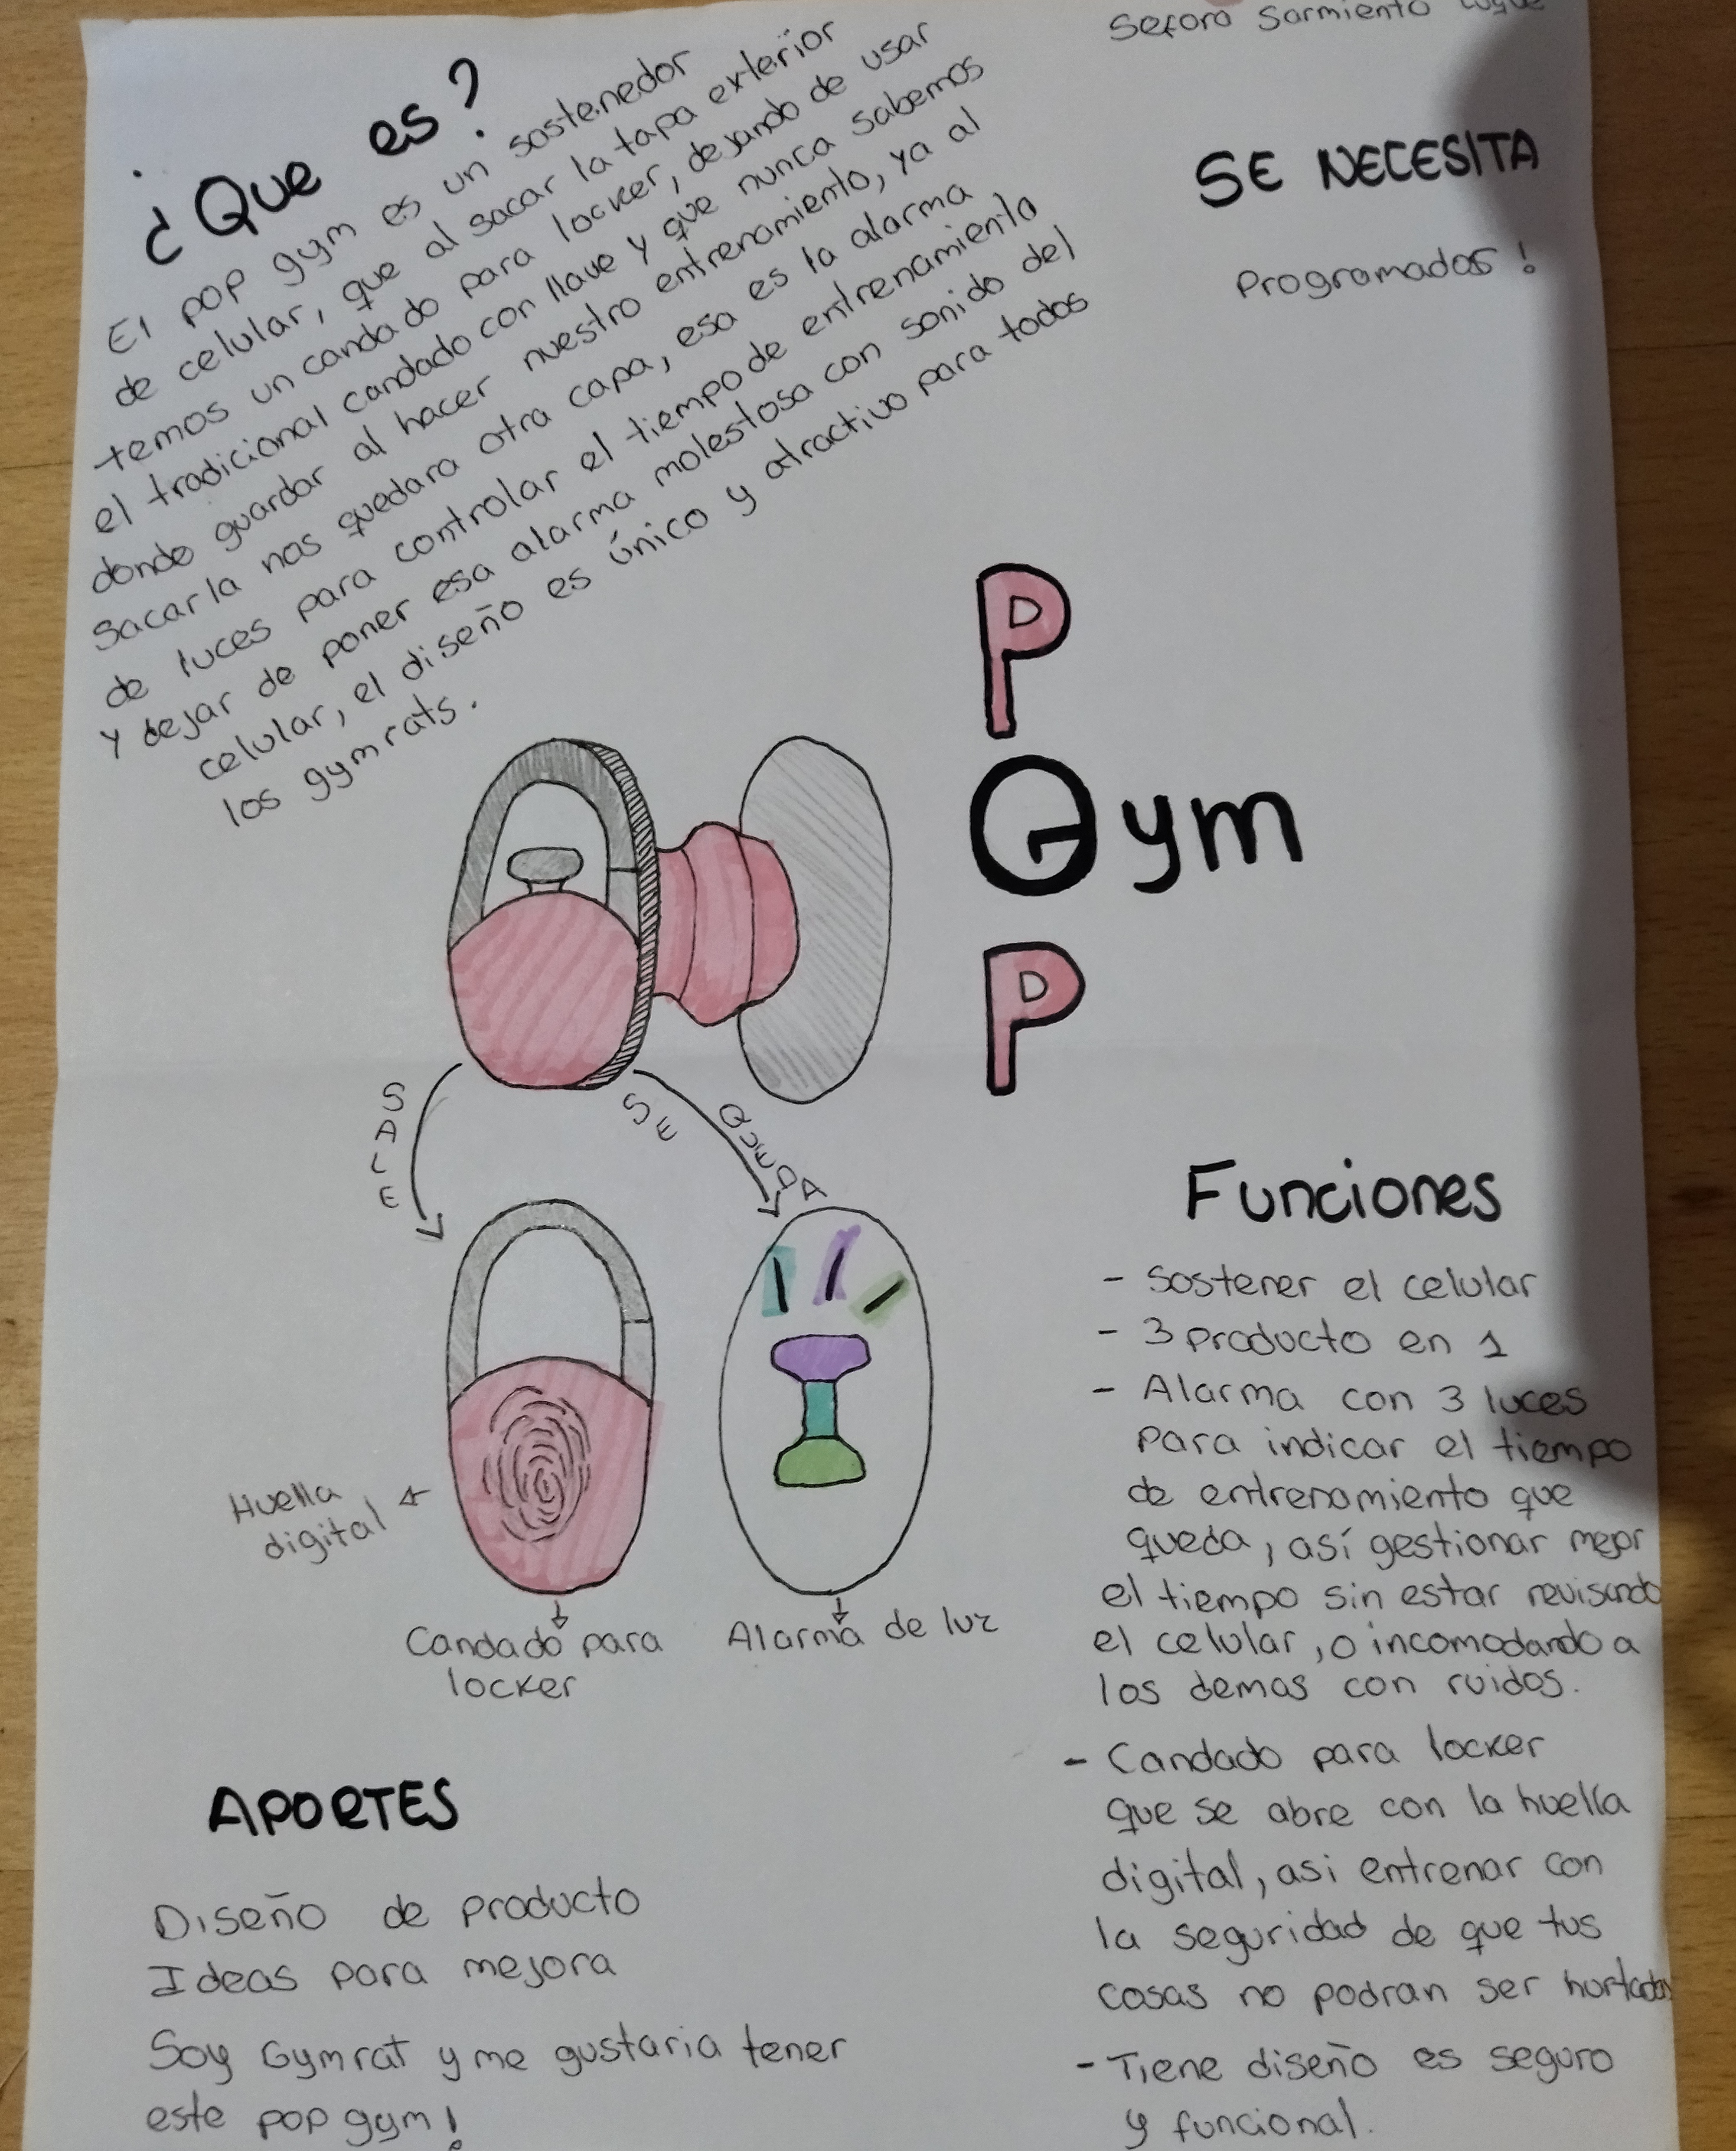 Sefora Sarmiento Luque
¿Que es?
El pop gym es un sostenedor
de celular, que al sacar la tapa exterior
temos un candado para locker, dejando de usar
el tradicional candado con llave y que nunca sabemos
donde guardar al hacer nuestro entrenamiento, ya al
Sacarla nos quedara otra capa, esa es la alarma
de luces para controlar el tiempo de entrenamiento
y dejar de poner esa alarma molestosa con sonido del
celular, el diseño es único y atractivo para todos
los gym rats.
SE NECESITA
Programador!
P
Gym
P
SALE
SE QUEDA
Huella
digital
Candado para
locker
Alarma de luz
Funciones
- Sostener el celular
- 3 producto en 1
- Alarma con 3 luces
para indicar el tiempo
de entrenamiento que
queda, así gestionar mejor
el tiempo sin estar revisando
el celular, o incomodando a
los demas con ruidos.
- Candado para locker
que se abre con la huella
digital, asi entrenar con
la seguridad de que tus
cosas no podran ser hurtadas
- Tiene diseño es seguro
y funcional.
APORTES
Diseño de producto
Ideas para mejora
Soy Gymrat y me gustaria tener
este pop gym!